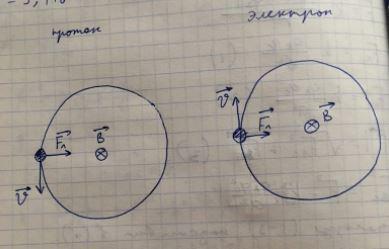 протон
электрон
v⃗
F⃗л
B⃗
v⃗
F⃗л
B⃗